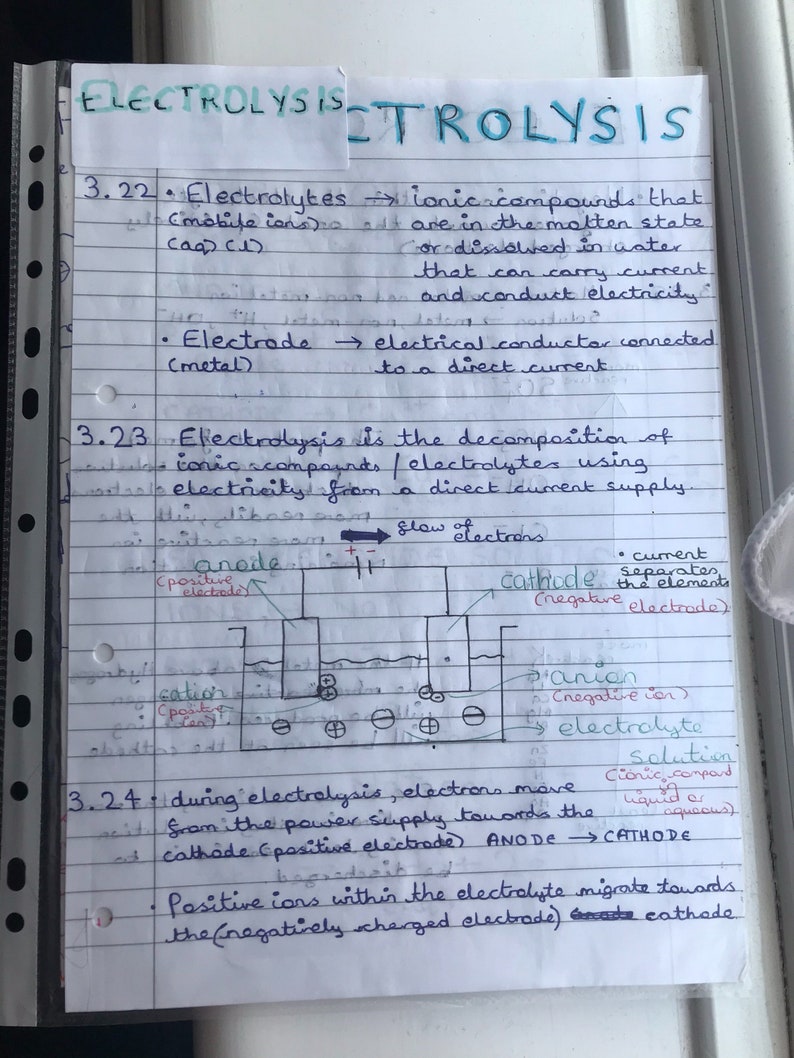 ELECTROLYSIS
CTROLYSIS
3.22 • Electrolytes → ionic compounds that
(mobile ions) are in the molten state
(aq) (l) or dissolved in water
that can carry current
and conduct electricity
• Electrode → electrical conductor connected
(metal) to a direct current
3.23 Electrolysis is the decomposition of
ionic compounds / electrolytes using
electricity from a direct current supply.
flow of
electrons
+ -
anode
(positive
electrode)
cathode
(negative
electrode)
• current
separates
the elements
cation
(positive
ion)
anion
(negative ion)
electrolyte
solution
(ionic compound
liquid or
aqueous)
3.24 • during electrolysis, electrons move
from the power supply towards the
cathode (positive electrode) ANODE → CATHODE
• Positive ions within the electrolyte migrate towards
the (negatively charged electrode) cathode